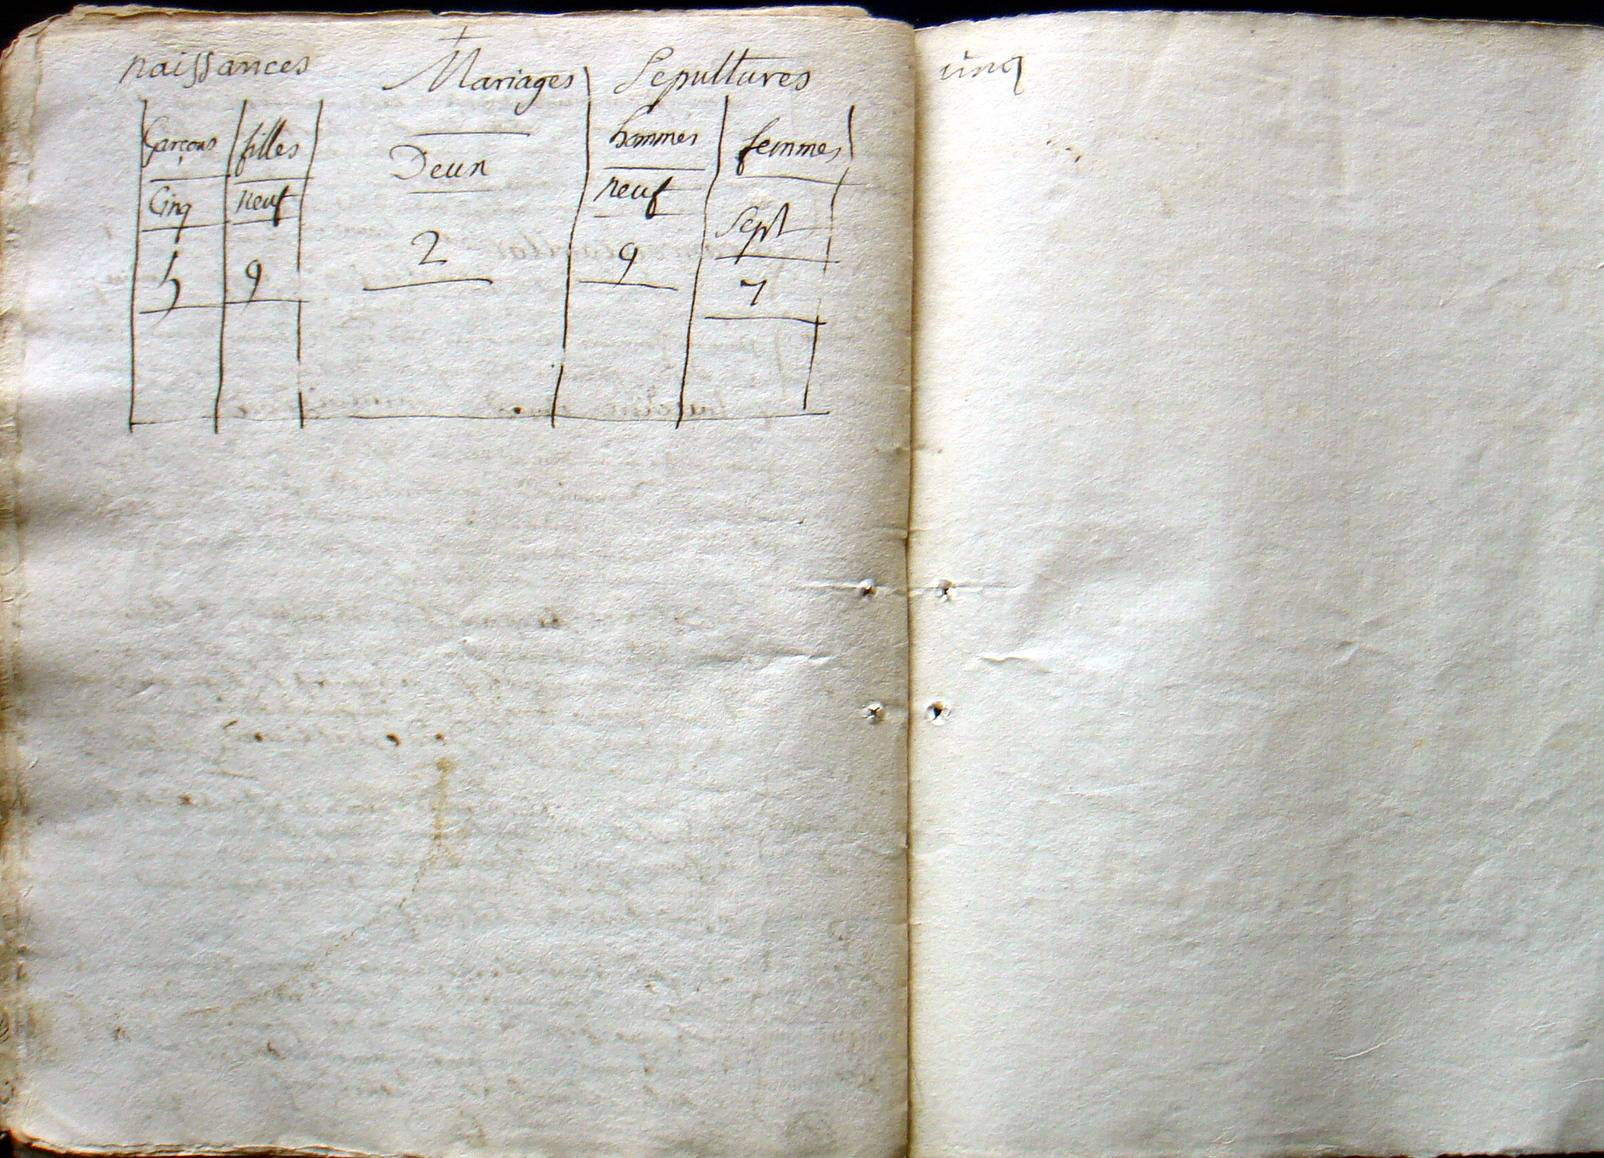 naissances Mariages Sepultures
garçons filles hommes femmes
Cinq neuf Deux neuf Sept
5 9 2 9 7
cinq